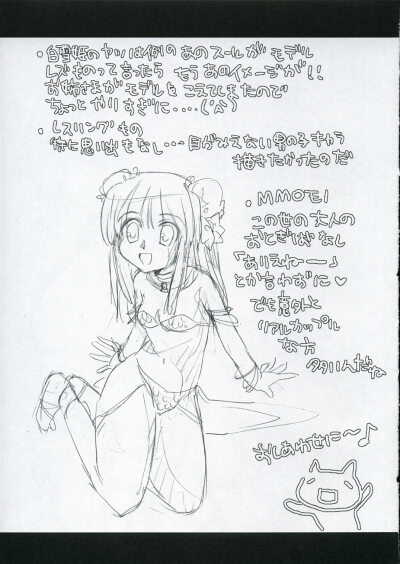 ・白雪姫のヤツは例のあのスールがモデル
レズものって言ったら もうあのイメージが!!
お姉さまがモデルを こえてしまったので
ちょっとやりすぎに・・・・('A`)
・レスリングもの
特に思い出もなし・・・目がみえない男の子キャラ
描きたかったのだ
・MMOモノ
この世の大人の
おとぎばなし
「ありえねー――」
とか言わずに♡
でも意外と
リアルカップル
な方
多いんだね
おしあわせに〜♪